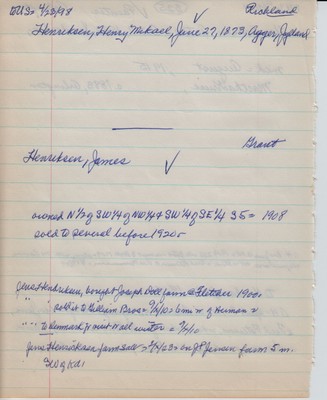 to US> 4/23/98 Richland
Henriksen, Henry Mikael, June 27, 1873, Agger, Jylland
Grant
Henriksen, James
owned N½ of SW¼ of NW¼ & SW¼ of SE¼ 35 = 1908
sold to several before 1920s
Jens Hendriksen, bought Joseph Doll farm @ Fletcher 1900s
" " sold it to William Bros = 9/2/10 > 6 mi n of Herman >
" " to Denmark for next all winter = 9/9/10
Jens Henriksen farm sale > 2/2/23 > on J.P. Jensen farm 5 m.